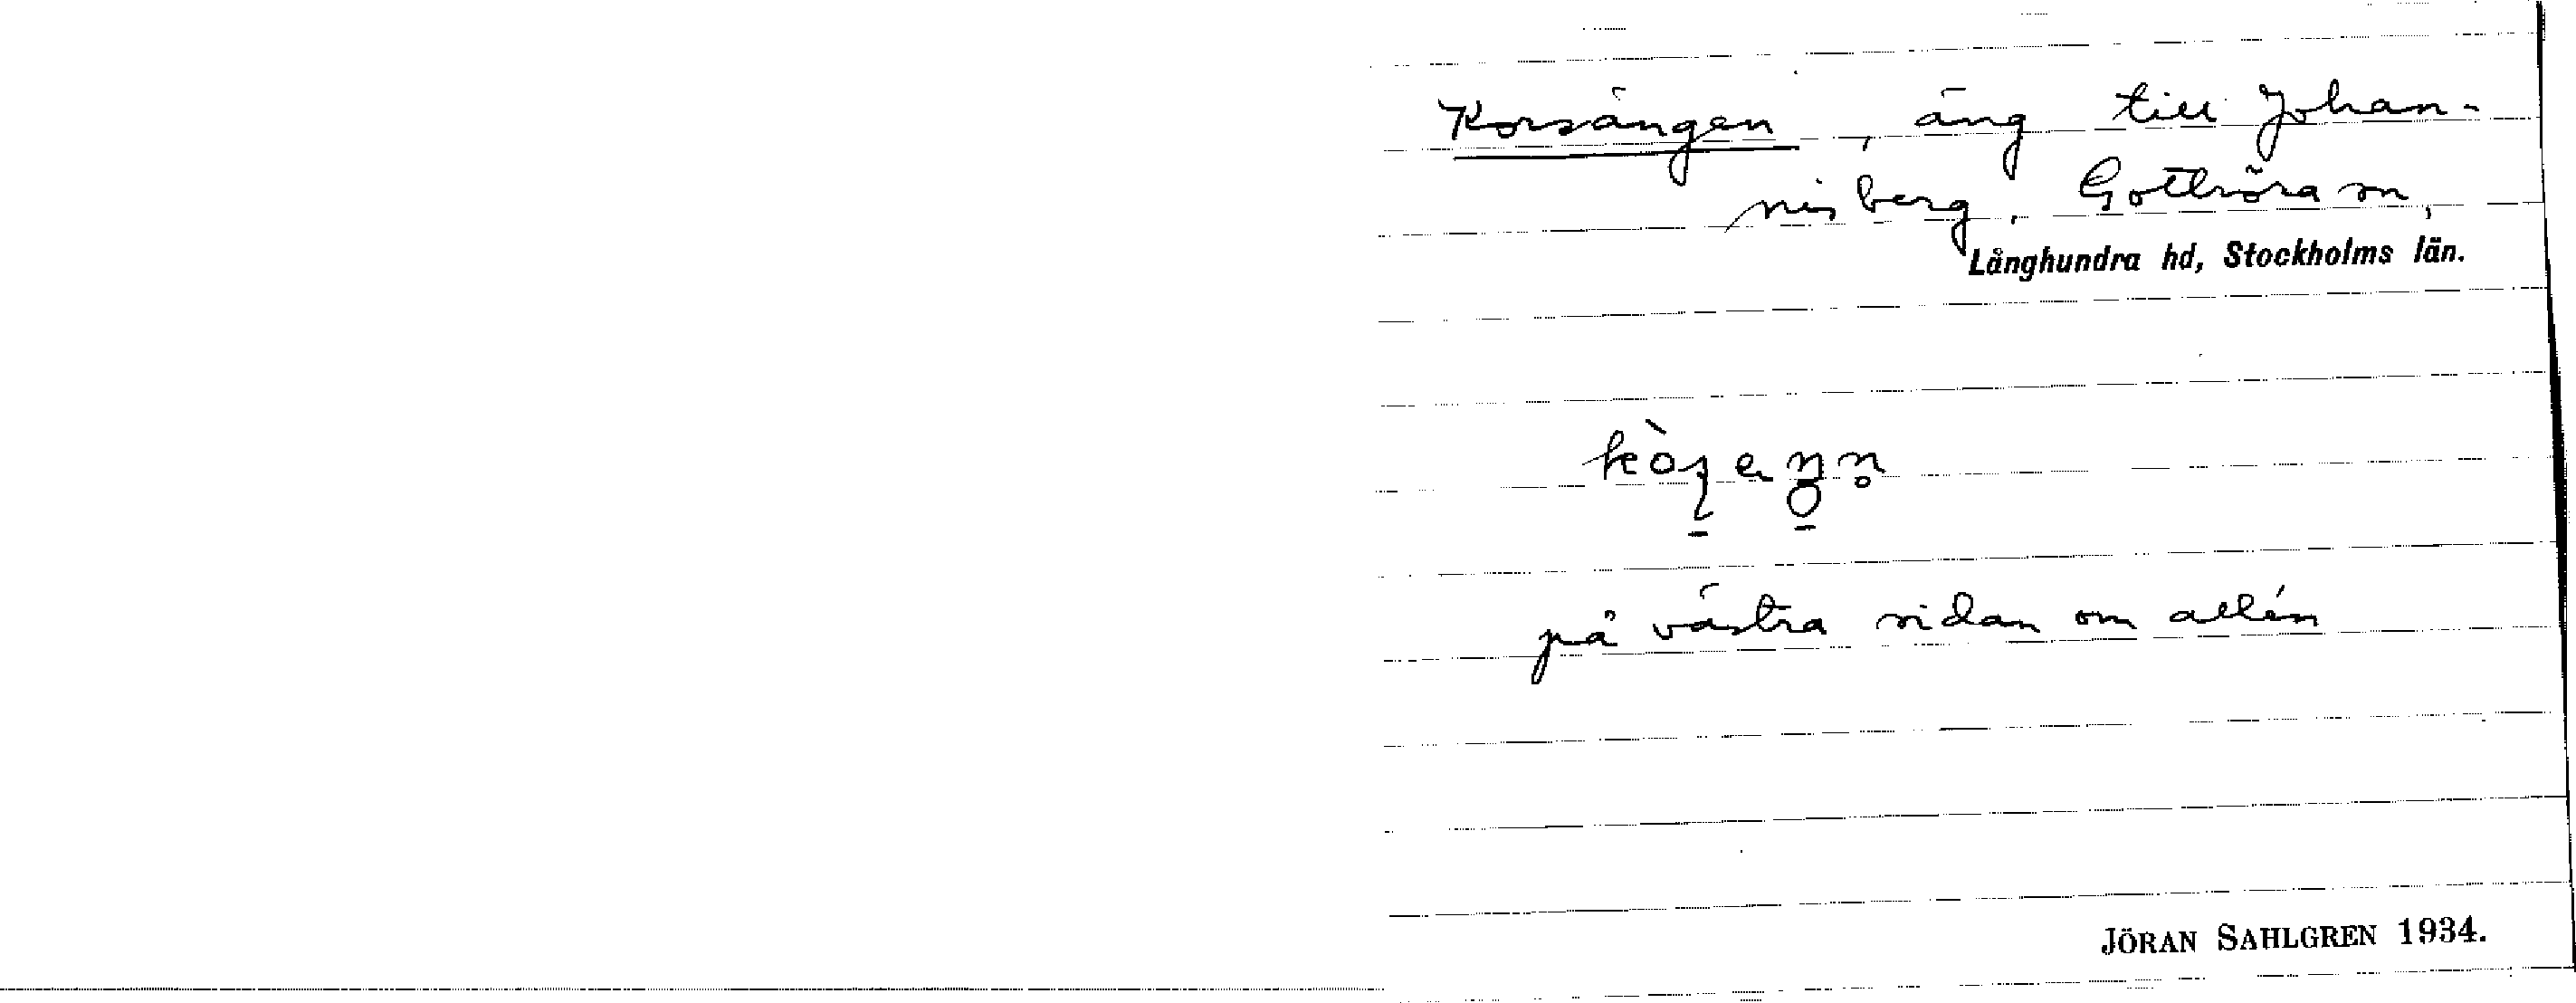 Korsängen, äng till Johan-
nisberg, Gottröra sn,
Långhundra hd, Stockholms län.
på västra sidan om allén
JÖRAN SAHLGREN 1934.